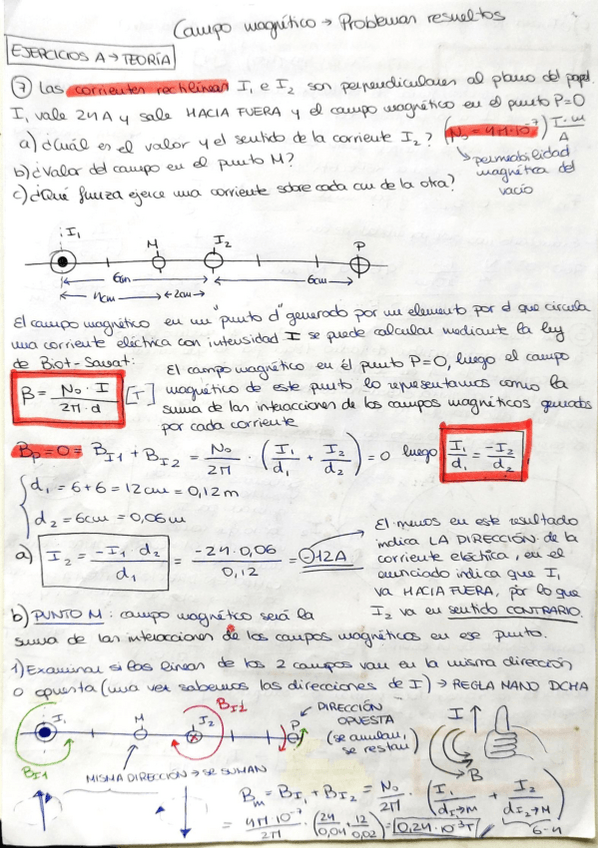 Campo magnético → Problemas resueltos
EJERCICIOS A → TEORÍA
⑦ Las corrientes rectilíneas I₁ e I₂ son perpendiculares al plano del papel
I₁ vale 24A y sale HACIA FUERA y el campo magnético en el punto P=0
a) ¿Cuál es el valor y el sentido de la corriente I₂? (N₀ = 4π·10⁻⁷ T·m/A)
b) ¿Valor del campo en el punto M?
permeabilidad
magnética del
vacío
c) ¿Qué fuerza ejerce una corriente sobre cada cm de la otra?
I₁ M I₂ P
6cm 6cm
4cm 2cm
El campo magnético en un "punto d" generado por un elemento por d que circula
una corriente eléctrica con intensidad I se puede calcular mediante la ley
de Biot-Savat:
B = N₀·I / 2π·d [T]
El campo magnético en él punto P=0, luego el campo
magnético de este punto lo representamos como la
suma de las interacciones de los campos magnéticos generados
por cada corriente
Bp=0= B_I1 + B_I2 = N₀/2π · (I₁/d₁ + I₂/d₂) = 0 luego I₁/d₁ = -I₂/d₂
d₁ = 6+6 = 12cm = 0,12m
d₂ = 6cm = 0,06m
a) I₂ = -I₁·d₂ / d₁ = -24·0,06 / 0,12 = -12A
El menos en este resultado
indica LA DIRECCIÓN de la
corriente eléctrica, en el
enunciado indica que I₁
va HACIA FUERA, por lo que
I₂ va en sentido CONTRARIO.
b) PUNTO M: campo magnético será la
suma de las interacciones de los campos magnéticos en ese punto.
1) Examinar si las lineas de los 2 campos van en la misma dirección
o opuesta (una vez sabemos las direcciones de I) → REGLA MANO DCHA
I₁ M I₂ B_I2 P
DIRECCIÓN
OPUESTA
(se anulan,
se restan)
I
B
B_I1
MISMA DIRECCIÓN → SE SUMAN
Bm = B_I1 + B_I2 = N₀/2π · (I₁/d_I1→M + I₂/d_I2→M)
= 4π·10⁻⁷/2π · (24/0,04 + 12/0,02) = 0,24·10⁻³T
6-4